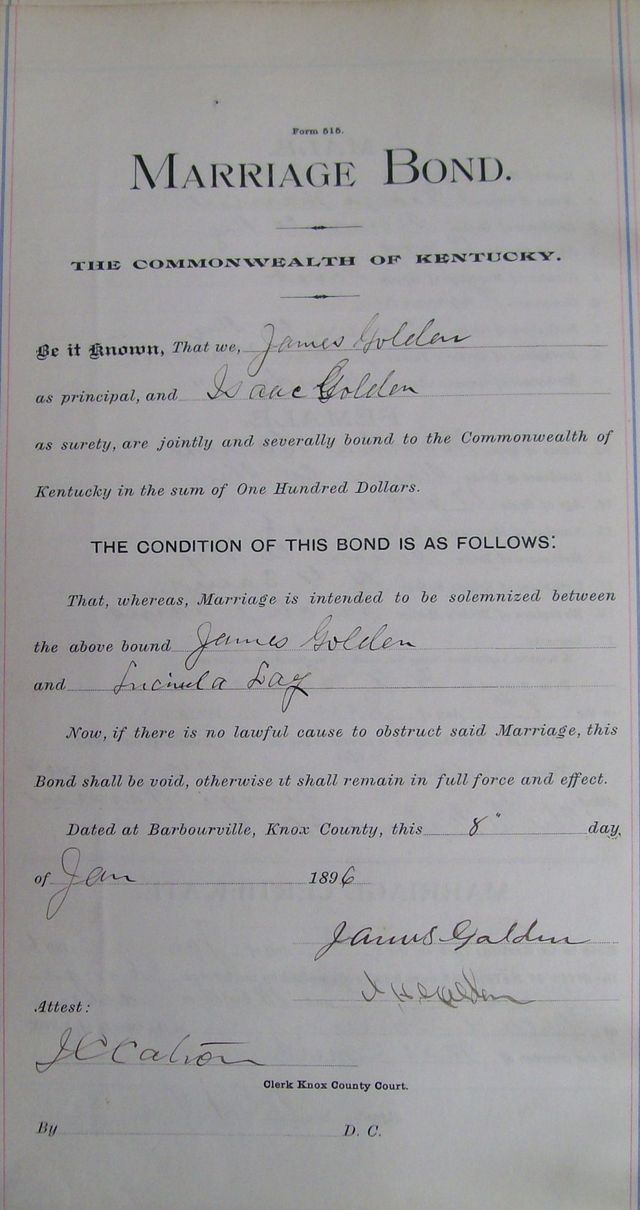 Form 515.
MARRIAGE BOND.
THE COMMONWEALTH OF KENTUCKY.
Be it Known, That we, James Golden
as principal, and Isaac Golden
as surety, are jointly and severally bound to the Commonwealth of
Kentucky in the sum of One Hundred Dollars.
THE CONDITION OF THIS BOND IS AS FOLLOWS:
That, whereas, Marriage is intended to be solemnized between
the above bound James Golden
and Lucinda Lay
Now, if there is no lawful cause to obstruct said Marriage, this
Bond shall be void, otherwise it shall remain in full force and effect.
Dated at Barbourville, Knox County, this 8" day,
of Jan 1896
James Golden
Golden
Attest:
J C
Clerk Knox County Court.
By D. C.